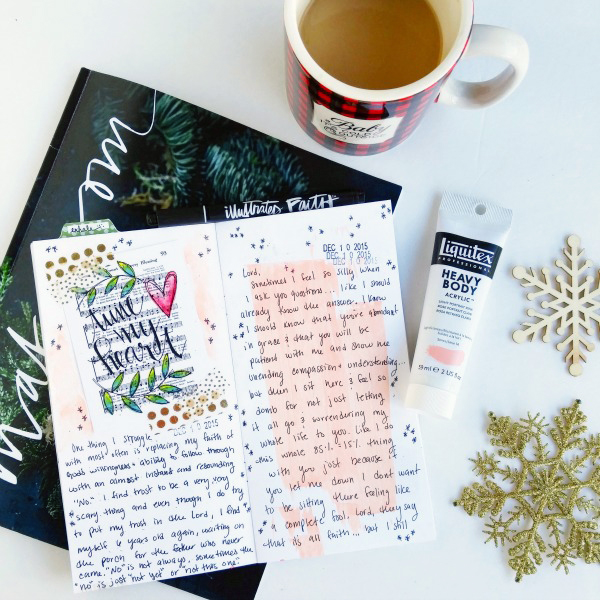 Baby
illustrated Faith
tune
my
heart
DEC 10 2015
One thing I struggle
with most often is replacing my faith of
good willingness + ability to follow through
with an almost instant and resounding
"No." I find trust to be a very very
scary thing and even though I do try
to put my trust in the Lord, I find
myself 6 years old again, waiting on
the porch for the father who never
came. "No" is not always, sometimes the
"no" is just "not yet" or "not this one."
DEC 10 2015
DEC 10 2015
Lord,
sometimes I feel so silly when
I ask you questions... like I should
already know the answer. I know
I should know that you're abundant
in grace & that you will be
patient with me and show me
unending compassion + understanding...
but then I sit here & feel so
dumb for not just letting
it all go & surrendering my
whole life to you. Like I do
this whole 85% - 15% thing
with you just because of
you me down I don't want
to be sitting there feeling like
a complete fool. Lord, they say
that its all faith... but I still
Liquitex
PROFESSIONAL
HEAVY
BODY
ACRYLIC
59 ml e 2 US